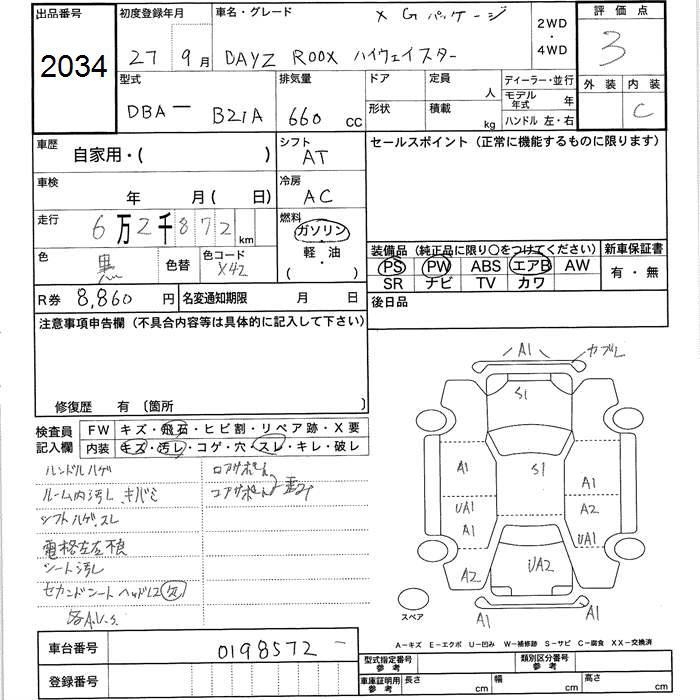 出品番号 2034
初度登録年月 27 9月
車名・グレード X Gパッケージ
DAYZ ROOX ハイウェイスター
2WD・4WD
評価点 3
外装 内装 C
型式 DBA－ B21A
排気量 660 cc
ドア 形状
定員 人
積載 kg
ディーラー・並行
モデル年式 年
ハンドル 左・右
車歴 自家用・( )
シフト AT
セールスポイント（正常に機能するものに限ります）
車検 年 月( 日)
冷房 AC
走行 6万2千872km
燃料 ガソリン・軽油( )
色 黒 色替 色コード X42
装備品（純正品に限り○をつけてください） 新車保証書
PS PW ABS エアB AW 有・無
SR ナビ TV カワ
R券 8,860円 名変通知期限 月 日
後日品
注意事項申告欄（不具合内容等は具体的に記入して下さい）
修復歴 有〔箇所 〕
検査員記入欄
FW キズ・飛石・ヒビ割・リペア跡・X要
内装 キズ・汚レ・コゲ・穴・スレ・キレ・破レ
ハンドルハゲ
ルーム内汚レ キバミ
シフトハゲ.スレ
電格左左不良
シート汚レ
セカンドシートヘッドレス欠
ロアサポート
コアサポート
A1 カブレ
S1
A1 S1 A1
UA1 A2
A1 UA1
A2 UA2
A1 A1
スペア
A－キズ E－エクボ U－凹み W－補修跡 S－サビ C－腐食 XX－交換済
車台番号 0198572
登録番号
型式指定番号参考 類別区分番号参考
車庫証明用参考 長さ cm 幅 cm 高さ cm